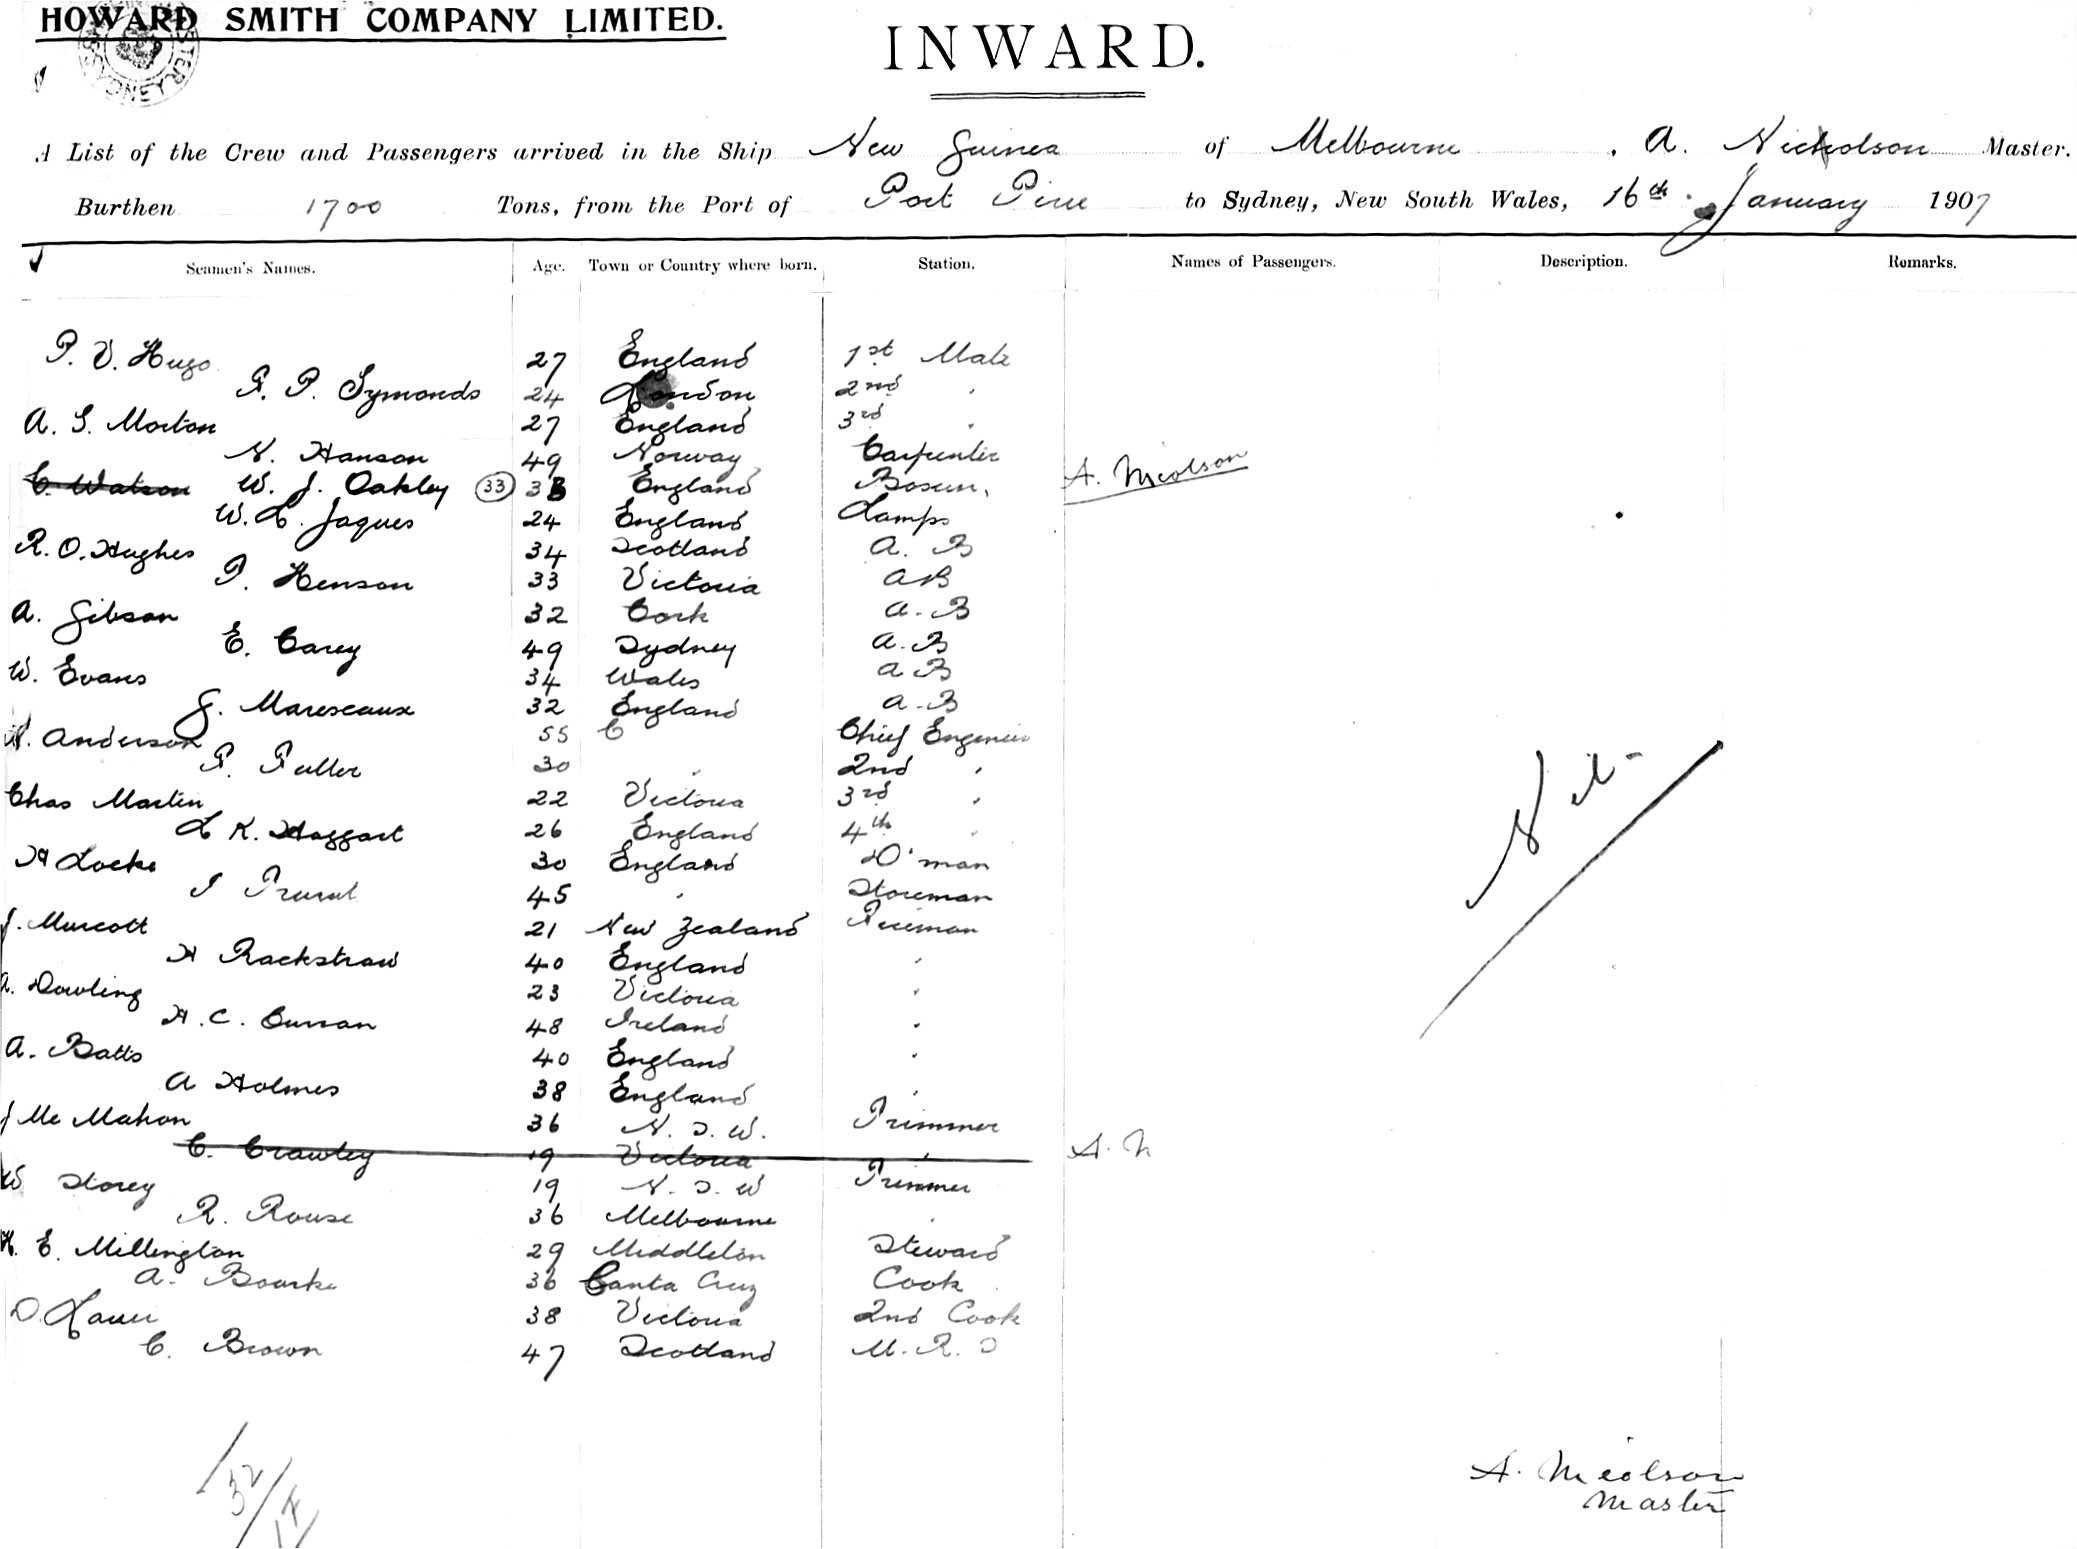 HOWARD SMITH COMPANY LIMITED.
INWARD.
A List of the Crew and Passengers arrived in the Ship New Guinea of Melbourne, A. Nicholson Master.
Burthen 1700 Tons, from the Port of Port Pirie to Sydney, New South Wales, 16th January 1907
Seamen's Names. Age. Town or Country where born. Station. Names of Passengers. Description. Remarks.
P. V. Hugo 27 England 1st Mate
F. P. Symonds 24 London 2nd "
A. S. Morton 27 England 3rd "
N. Hanson 49 Norway Carpenter
C. Watson W. J. Oakley (33) 33 England Bosun. A. Nicolson
W. L. Jaques 24 England Lamps
R. O. Hughes 34 Scotland A. B
P. Henson 33 Victoria AB
A. Gibson 32 Cork A. B
E. Carey 49 Sydney A. B
W. Evans 34 Wales A B
G. Mareseaux 32 England A. B
Anderson 55 Chief Engineer
F. Fuller 30 " 2nd "
Chas Martin 22 Victoria 3rd "
L K. Haggart 26 England 4th "
H Locke 30 England D'man
45 " Storeman
J. Murcott 21 New Zealand Fireman
H Rackstraw 40 England "
A. Dowling 23 Victoria "
H. C. Curran 48 Ireland "
A. Batts 40 England "
A Holmes 38 England "
J Mc Mahon 36 N. S. W. Trimmer
C. Crawley 19 Victoria " A. N
W Storey 19 N. S. W Trimmer
R. Rouse 36 Melbourne "
H. E. Millington 29 Middleton Steward
A. Bourke 36 Santa Cruz Cook
D. 38 Victoria 2nd Cook
C. Brown 47 Scotland M. R. S
Nil
32
A. Nicolson
Master